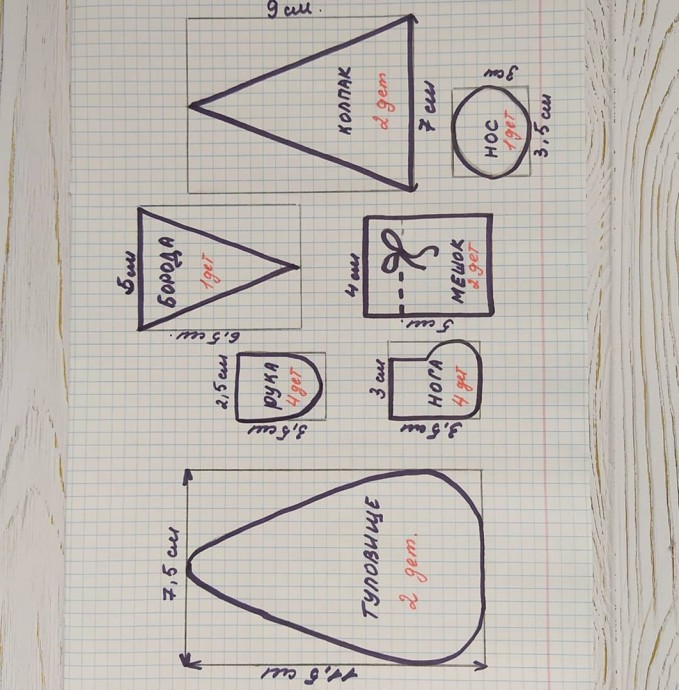 9 см.
КОЛПАК
2 дет
7 см
3см
НОС
1дет
3,5 см
5см
БОРОДА
1дет
6,5 см.
4 см
МЕШОК
2 дет
5 см.
2,5 см
РУКА
4 дет
3,5 см
3 см
НОГА
4 дет
3,5 см
7,5 см
ТУЛОВИЩЕ
2 дет.
11,5 см